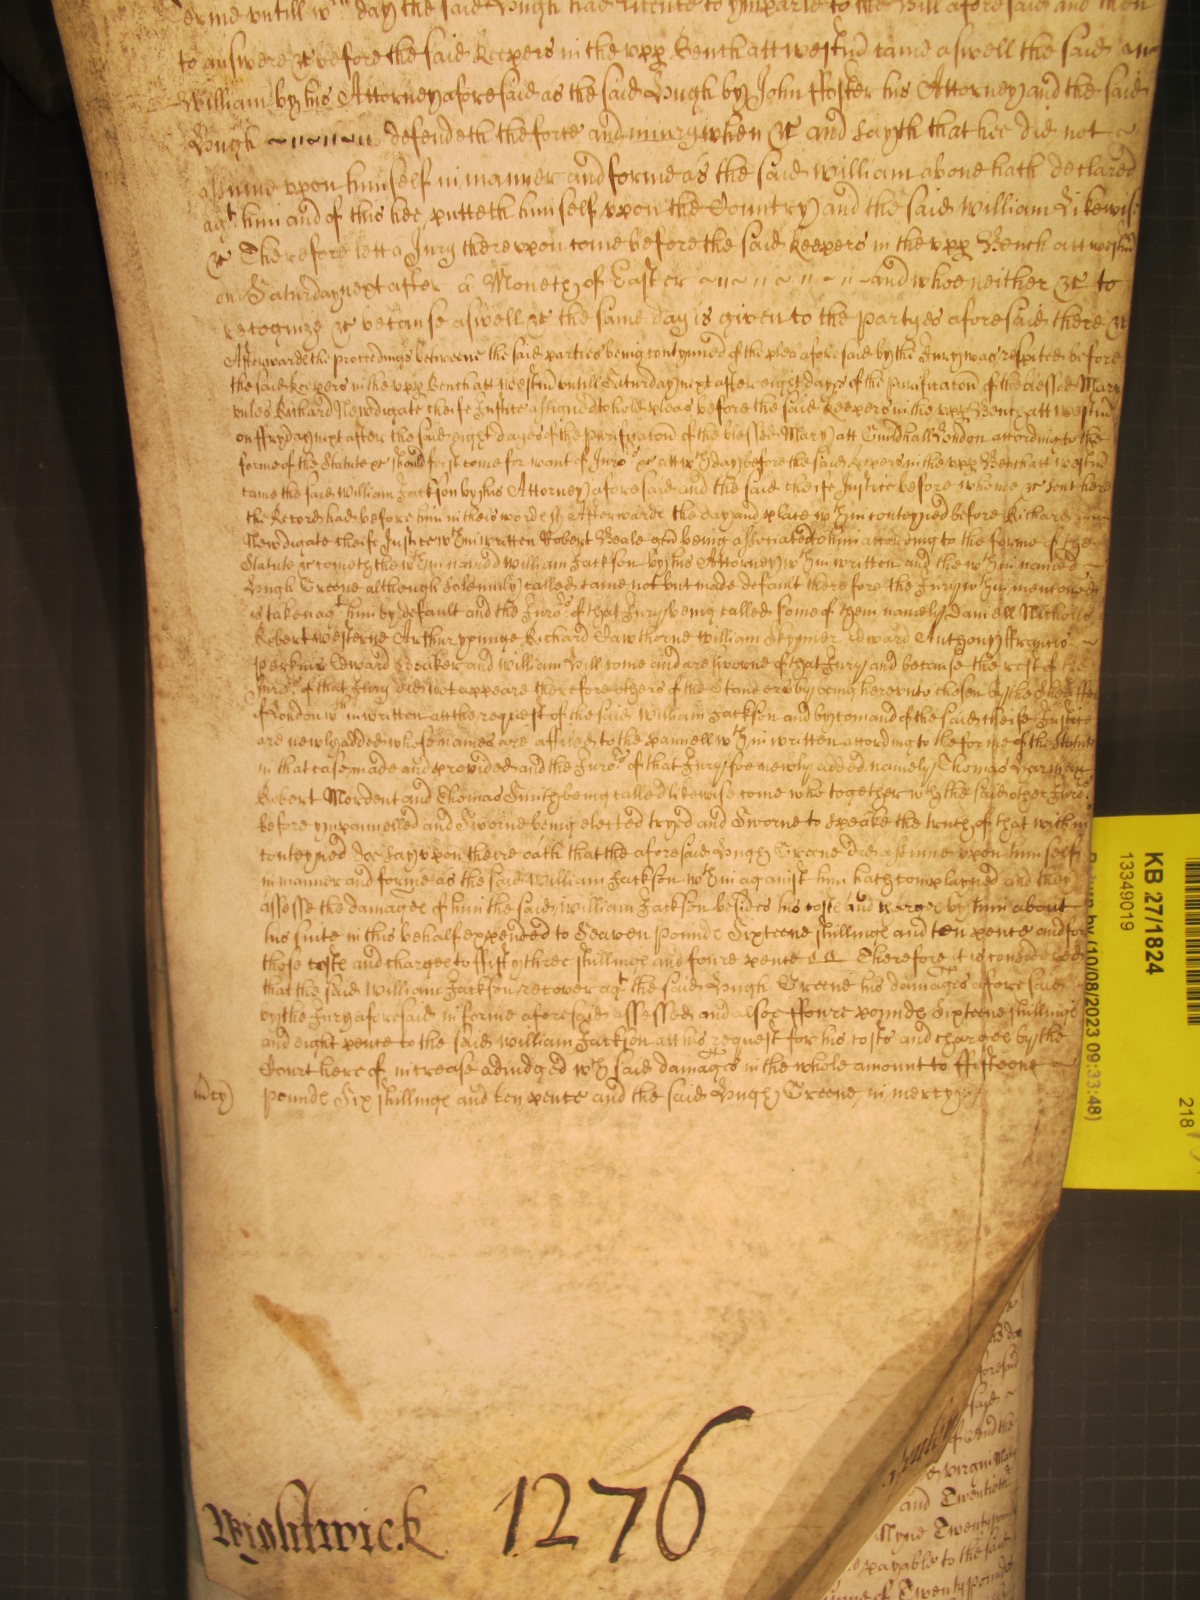 Terme untill wch day the said Hugh had licence to imparle to the Bill aforesaid and then
to answere &c before the said keepers in the upp Bench att westmr came aswell the said
William by his Attorney aforesaid as the said Hugh by John ffoster his Attorney and the said
Hugh defendeth the force and iniury when &c and sayth that hee did not
assume upon himself in manner and forme as the said William above hath declared
agt him and of this hee putteth himself upon the Country and the said William Likewise
&c Therefore lett a Jury thereupon come before the said keepers in the upp Bench att westmr
on Saturday next after a Moneth of Easter and whoe neither &c to
recognize &c because aswell &c the same day is given to the Partyes aforesaid there &c
Afterwards the proceedings betweene the said parties being contynued of the plea aforesaid by the Jury was respited before
the said keepers in the upp Bench att westmr untill Saturday next after eight dayes of the purificacon of the blessed Mary
unles Richard Newdigate cheife Justice assigned to hold pleas before the said keepers in the upp Bench att westmr
on ffryday next after the said eight dayes of the purificacon of the blessed Mary att Guildhall London according to the
forme of the Statute &c should first come for want of Juros &c att wch day before the said keepers in the upp Bench att westmr
came the said William Jackson by his Attorney aforesaid and the said cheife Justice before whome &c sent here
the Record had before him in theis words Afterwards the day and place wthin conteyned before Richard
Newdigate cheife Justice wthin written Robert Beale being associated to him according to the forme of the
Statute &c cometh the wthin named William Jackson by his Attorney wthin written and the wthin named
Hugh Greene although solemnly called came not but made default therefore the Jury wthin menconed
is taken agt him by default and the Juros of that Jury being called some of them namely Daniell Nicholls
Robert westerne Arthur younge Richard Cawthorne William Skymer Edward Anthony ffrancis
Perkins Edward Hooker and William Hill come and are sworne of that Jury and because the rest of the
Juros of that Jury did not appeare therefore others of the Standers by being hereunto chosen by the Sheriffes
of London wthin written att the request of the said William Jackson and by comand of the said cheife Justice
are newly added whose names are affiled to the pannell wthin written according to the forme of the Statute
in that case made and provided and the Juros of that Jury soe newly added namely Thomas Harman
Robert Mordent and Thomas Smith being called likewise come who together wth the said other Juros
before ympannelled and Sworne being elected tryed and Sworne to speake the truth of that within
conteyned doe say upon theire oath that the aforesaid Hugh Greene did assume upon himself
in manner and forme as the said William Jackson wthin against him hath complayned and they
assesse the damages of him the said William Jackson besides his costs and charges by him about
his suite in this behalf expended to Seaven Pounds Sixteene shillings and ten pence and for
those costs and charges to ffifty three shillings and foure pence Therefore it is considered
that the said William Jackson recover agt the said Hugh Greene his damages aforesaid
by the Jury aforesaid in forme aforesaid assessed and alsoe ffoure pounds Sixteene shillings
and eight pence to the said William Jackson att his request for his costs and charges by the
Court here of increase adiudged wch said damages in the whole amount to ffifteene
mcy) pounds Six shillings and ten pence and the said Hugh Greene in mercy &c
Wightwick 1276
aforesaid
said
and the
virgin Mary
and Twentieth
Twenty
payable to the said
of Twenty Pounds
KB 27/1824
13349019
by (10/08/2023 09:33:48)
218